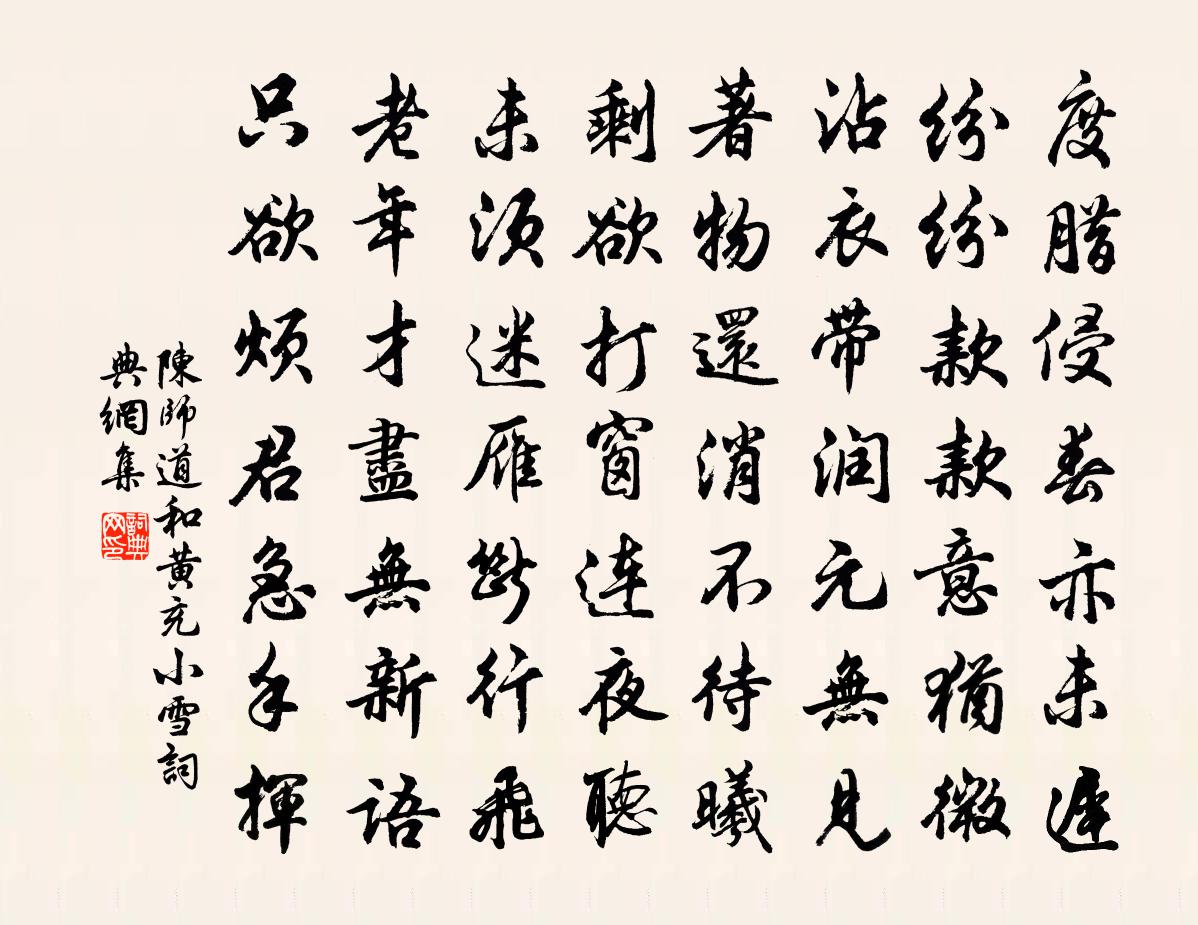 度腊侵春亦未遲
紛紛款款意猶微
沾衣帶润元無見
著物還消不待曦
剩欲打窗連夜聽
未須迷雁斷行飛
老年才盡無新語
只欲煩君急手揮
陳師道和黄充小雪詞
典網集
詞典网印